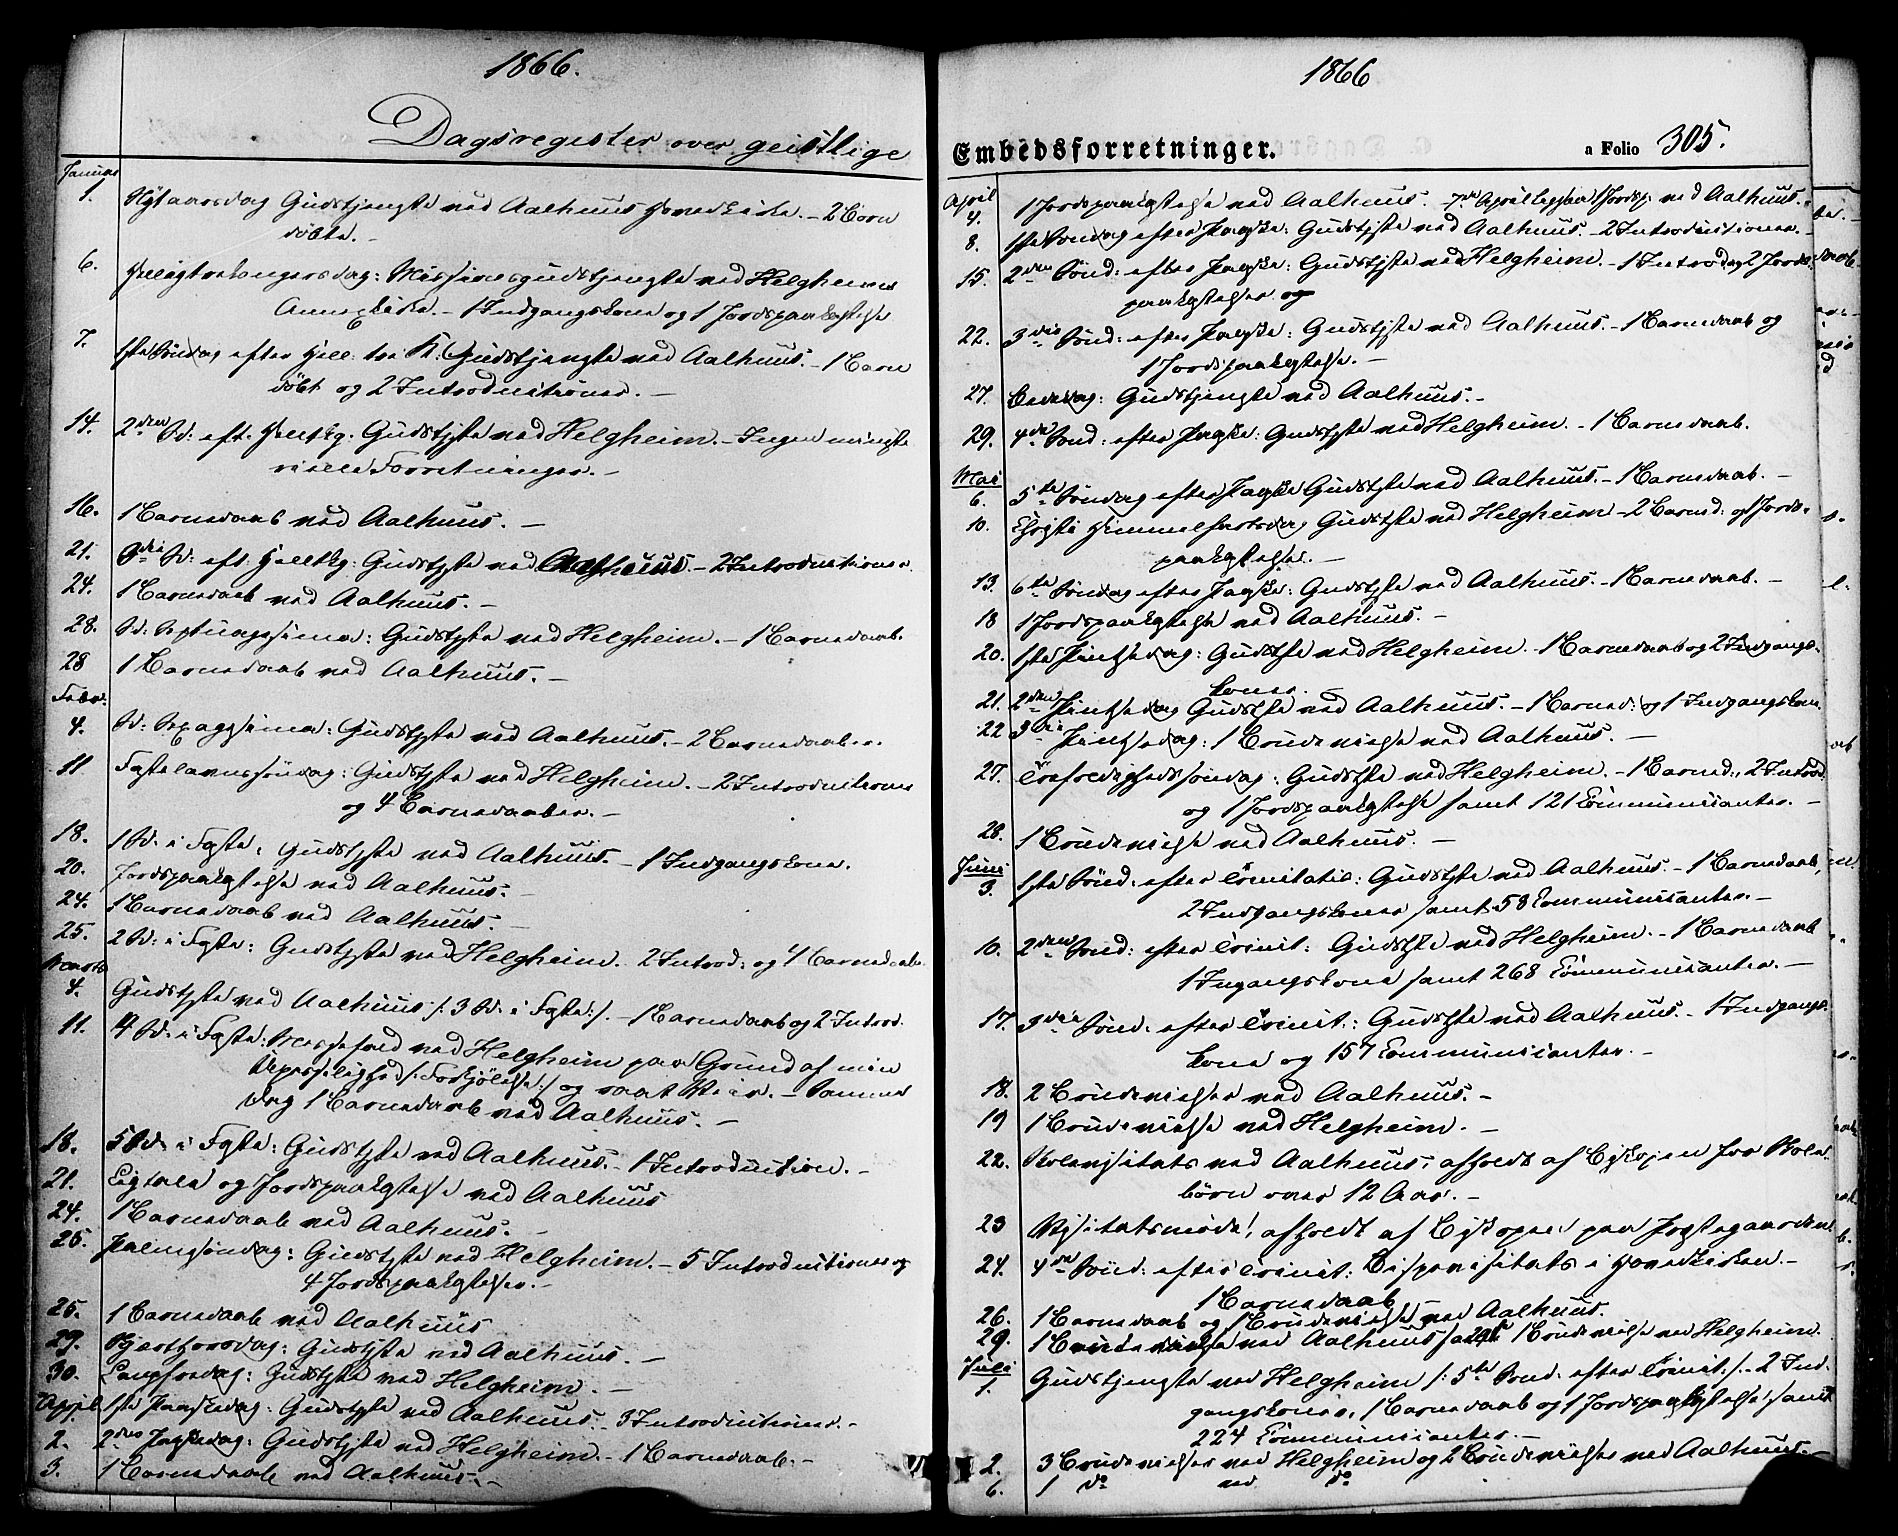 1866.
Dagsregister over geistlige
Januar
1. Nytaarsdag Gudstjeneste ved Aalhuus Hovedkirke. - 2 Børn
døbte. -
6. Helligtrekongersdag: Missionsgudstjeneste ved Helgheims
Annexkirke. - 1 Indgangskone og 1 Jordspaakastelse
7. 1ste Søndag efter Hell. tre K. Gudstjeneste ved Aalhuus. - 1 Barn
døbt og 2 Introductioner. -
14. 2den Sø: eft. Helltkg. Gudstjste ved Helgheim. - Ingen ministe
rielle Forretninger. -
16. 1 Barnedaab ved Aalhuus. -
21. 3die Sø: eft. Helltkg: Gudstjste ved Aalhuus. - 2 Introductioner.
24. 1 Barnedaab ved Aalhuus. -
28. Sø: Septuagesima: Gudstjste ved Helgheim. - 1 Barnedaab.
28 1 Barnedaab ved Aalhuus. -
Febr:
4. Sø: Sexagesima: Gudstjste ved Aalhuus. - 2 Barnedaaber.
11 Fastelavnssøndag: Gudstjste ved Helgheim. - 2 Introductioner
og 4 Barnedaaber. -
18. 1 Sø: i Faste: Gudstjste ved Aalhuus. - 1 Indgangskone.
20. Jordspaakastelse ved Aalhuus. -
24. 1 Barnedaab ved Aalhuus. -
25. 2 Sø: i Faste: Gudstjste ved Helgheim. 2 Introd: og 4 Barnedaab.
Marts
4. Gudstjste ved Aalhuus /: 3 Sø: i Faste :/. - 1 Barnedaab og 2 Introd.
11. 4 Sø: i Faste: Messefald ved Helgheim paa Grund af min
Upasselighed /: Forkjølelse :/ og raat Veir. - Samme
Dag 1 Barnedaab ved Aalhuus. -
18. 5 Sø: i Faste: Gudstjste ved Aalhuus. - 1 Introduction. -
21. Ligtale og Jordspaakastelse ved Aalhuus
24. 1 Barnedaab ved Aalhuus. -
25. Palmesøndag: Gudstjste ved Helgheim. - 5 Introductioner og
4 Jordspaakastelser. -
25. 1 Barnedaab ved Aalhuus
29. Skjærthorsdag: Gudstjste ved Aalhuus. -
30. Langfredag: Gudstjste ved Helgheim. -
April 1ste Paaskedag: Gudstjste ved Aalhuus. 3 Introductioner. -
2. 2den Paaskedag: Gudstjste ved Helgheim. - 1 Barnedaab. -
3. 1 Barnedaab ved Aalhuus. -
1866
Embedsforretninger. a Folio 305.
April
4. 1 Jordspaakastelse ved Aalhuus. 7de April 1 Jordsp. ved Aalhuus.
8. 1ste Søndag efter Paaske: Gudstjste ved Aalhuus. - 2 Introductioner. -
15. 2den Sønd: efter Paaske: Gudstjste ved Helgheim. - 1 Introd. og 2 Jords-
paakastelser og
22. 3die Sønd: efter Paaske: Gudstjste ved Aalhuus. - 1 Barnedaab og
1 Jordspaakastelse. -
27. Bededag: Gudstjeneste ved Aalhuus. -
29. 4de Sønd: efter Paaske: Gudstjste ved Helgheim. - 1 Barnedaab.
Mai
6. 5te Søndag efter Paaske Gudstjste ved Aalhuus. - 1 Barnedaab. -
10. Christi Himmelfartsdag Gudstjste ved Helgheim - 2 Barned: og 1 Jords-
paakastelse. -
13. 6te Søndag efter Paaske: Gudstjste ved Aalhuus. - 1 Barnedaab. -
18 1 Jordspaakastelse ved Aalhuus. -
20. 1ste Pintsedag: Gudstjste ved Helgheim. - 1 Barnedaab og 2 Indgangs-
koner. -
21. 2den Pintsedag Gudstjste ved Aalhuus. - 1 Barned: og 1 Indgangskone.
22 3die Pintsedag: 1 Brudevielse ved Aalhuus. -
27. Trefoldighedssøndag: Gudstjste ved Helgheim. - 1 Barned:, 2 Introd.
og 1 Jordspaakastelse samt 121 Communicanter. -
28. 1 Brudevielse ved Aalhuus. -
Juni
3. 1ste Sønd: efter Trinitatis: Gudstjste ved Aalhuus. - 1 Barnedaab,
2 Indgangskoner samt 58 Communicanter. -
10. 2den Sønd: efter Trinit: Gudstjste ved Helgheim. - 1 Barnedaab
1 Ingangskone samt 268 Communicanter. -
17. 3die Sønd: efter Trinit.: Gudstjste ved Aalhuus. - 1 Indgangs-
kone og 157 Communicanter. -
18. 2 Brudevielser ved Aalhuus. -
19 1 Brudevielse ved Helgheim. -
22. Skolevisitats ved Aalhuus, afholdt af Biskopen for Skole-
børn over 12 Aar. -
23 Visitatsmøde, afholdt af Biskopen paa Præstegaarden
24. 4de Sønd: efter Trinit: Bispevisitats i Hovedkirken. -
1 Barnedaab
26. 1 Barnedaab og 1 Brudevielse ved Aalhuus.
29. 1 Brudevielse ved Aalhuus samt 1 Brudevielse ved Helgheim.
Juli
1. Gudstjeneste ved Helgheim /: 5te Sønd. efter Trinit :/. 2 Ind-
gangskoner, 1 Barnedaab og 1 Jordspaakastelse samt
224 Communicanter. -
2. 3 Brudevielser ved Helgheim og 2 Brudevielser ved Aalhuus. -
6. 1 do ved do